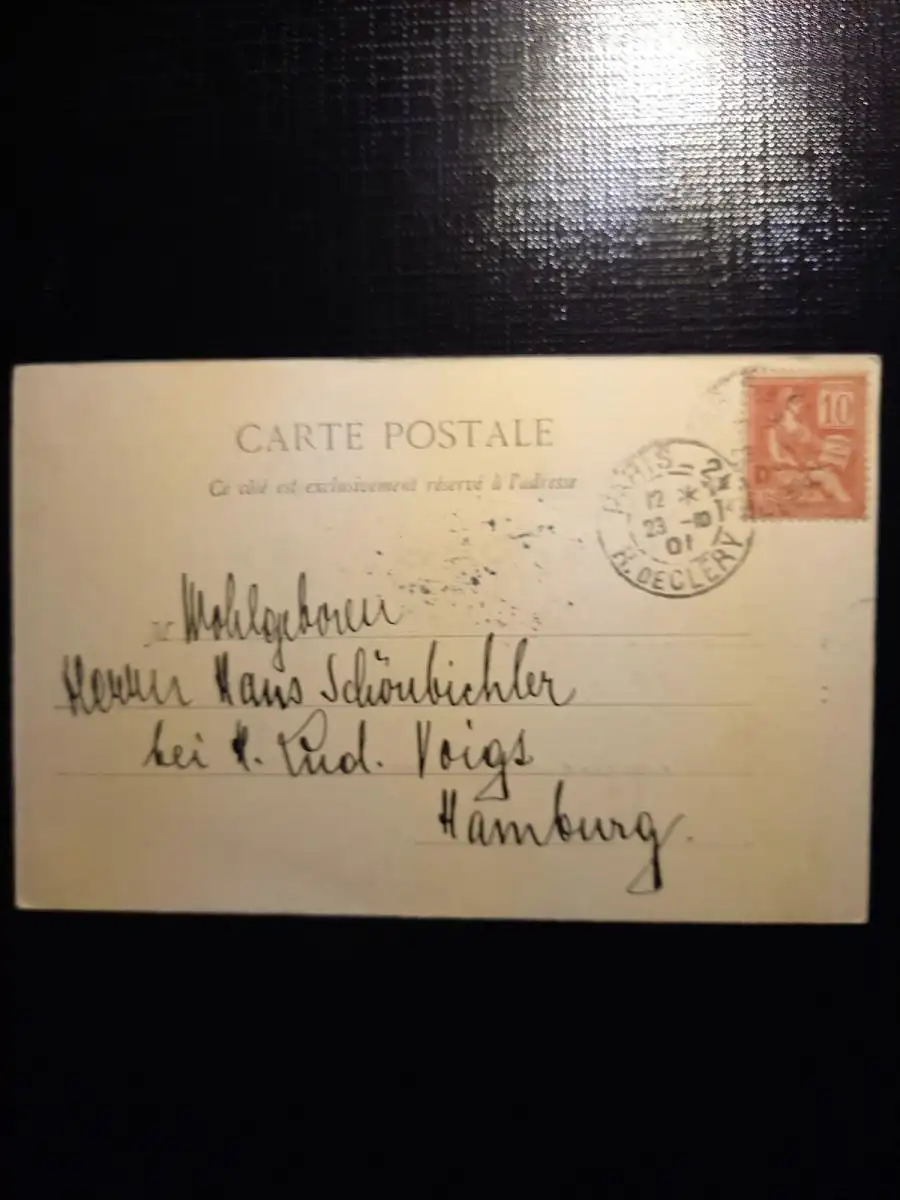 CARTE POSTALE
Ce côté est exclusivement réservé à l'adresse
10
PARIS
12 *
23 -10
01
R. DE CLERY
M
Wohlgeboren
Herrn Hans Schönbichler
bei H. Lud. Voigs
Hamburg.